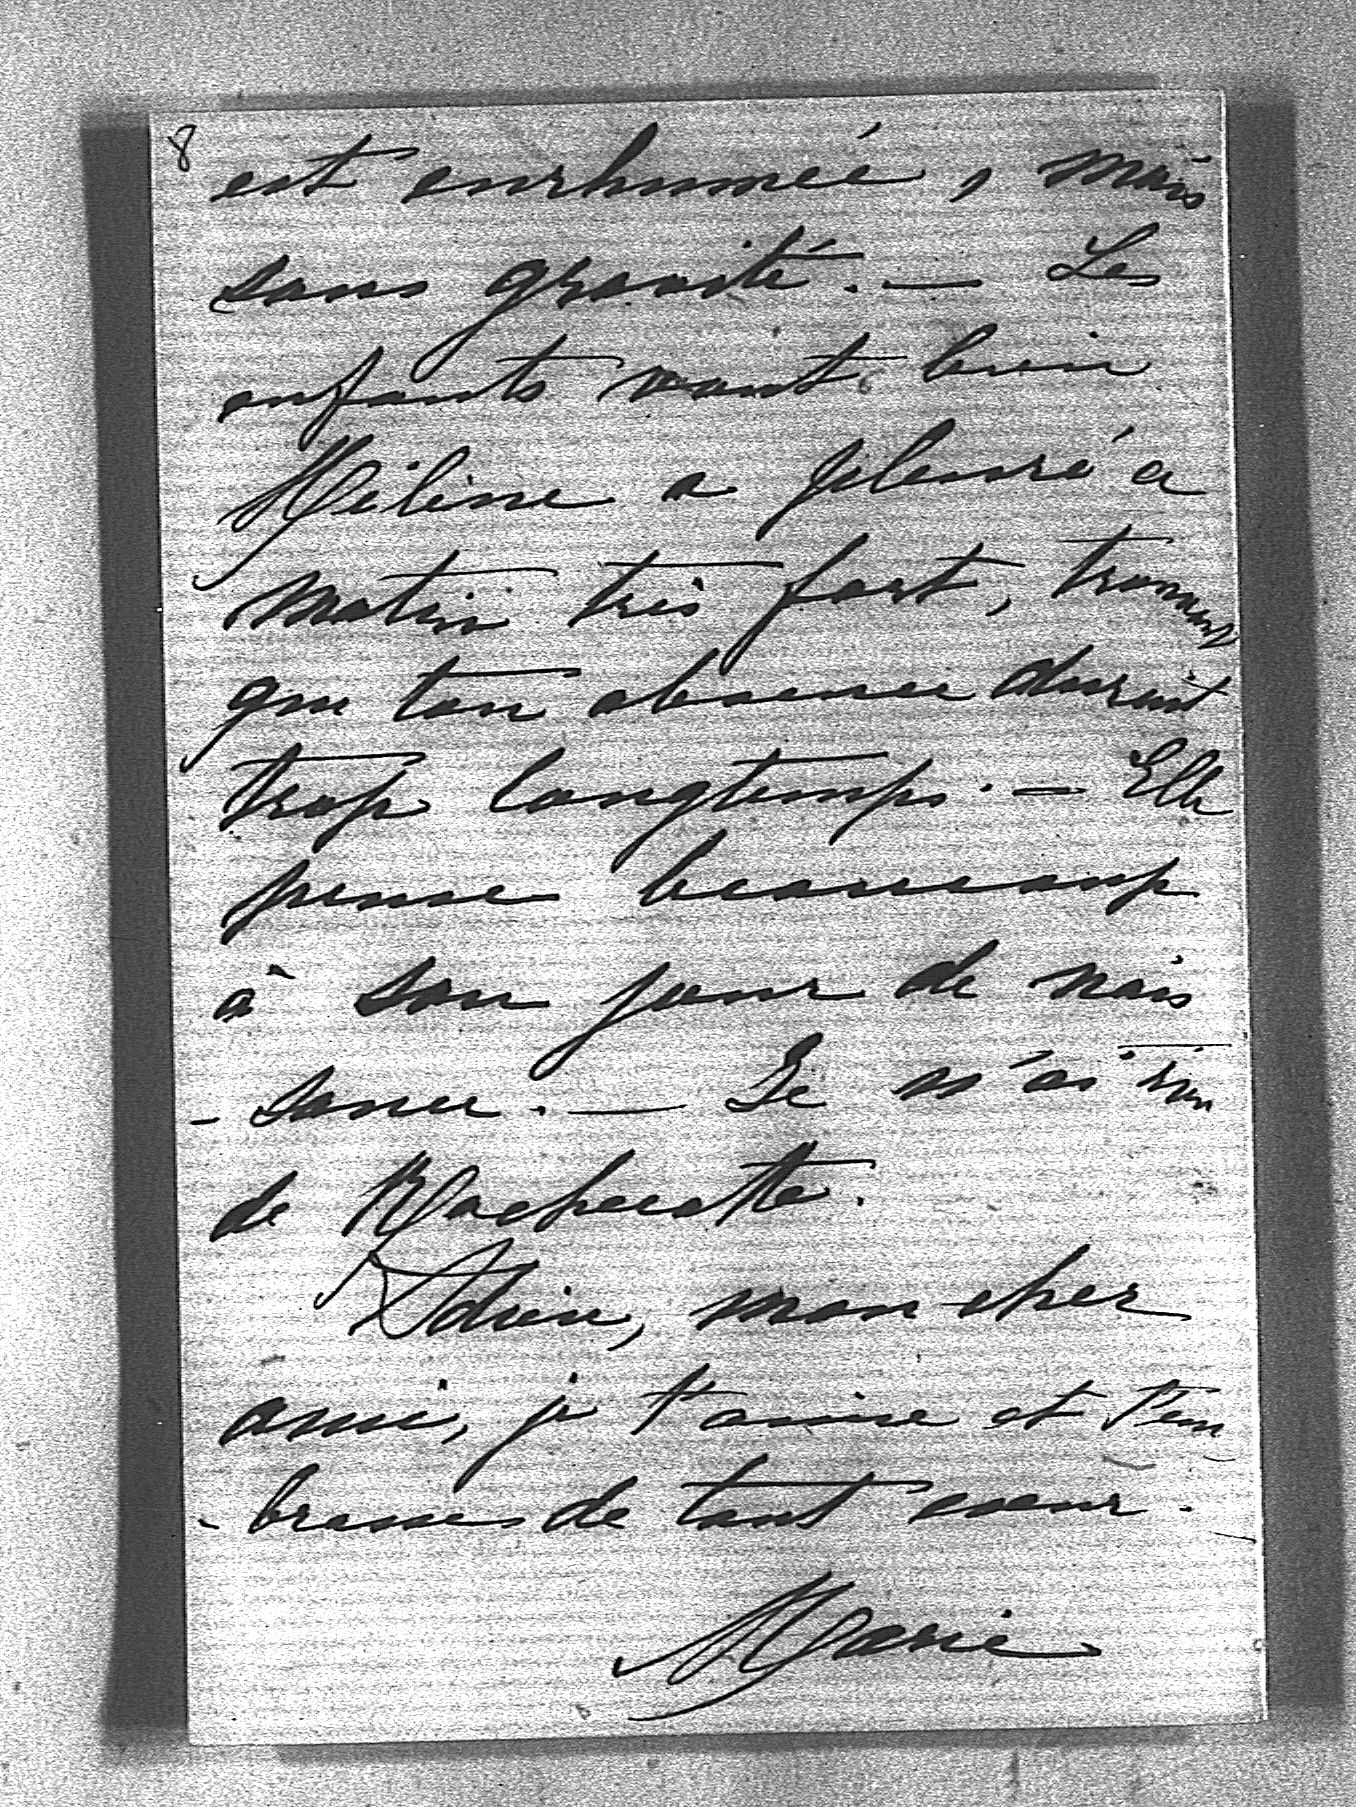 8
est enrhumée, mais
sans gravité. — Les
enfants vont bien
Hélène a pleuré ce
matin très fort, trouvant
que ton absence durait
trop longtemps. — Elle
pense beaucoup
à son jour de nais
- sance. — Je n'ai rien
de
Adieu, mon cher
ami, je t'aime et t'em
- brasse de tout coeur.
Marie